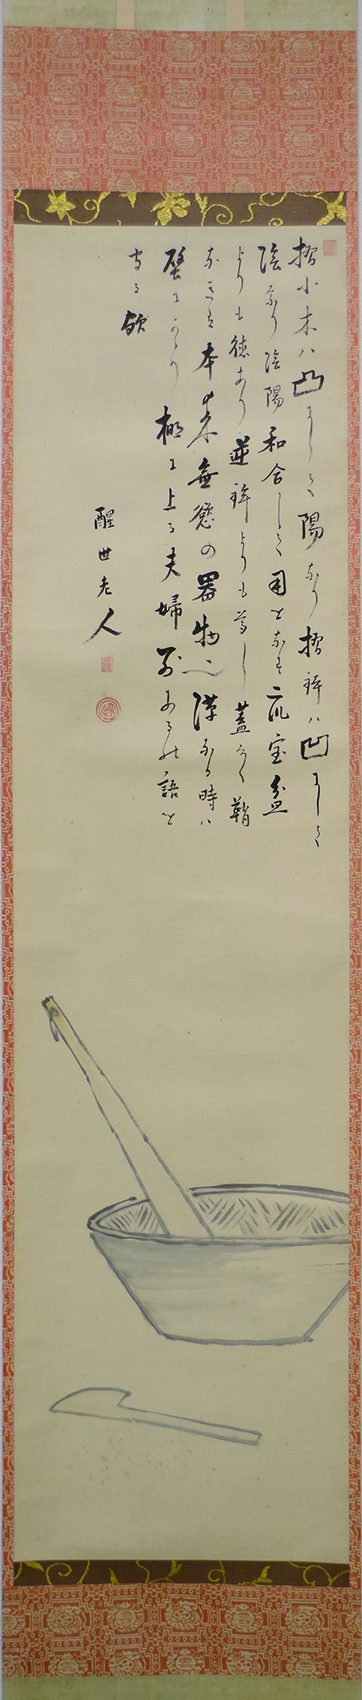 摺小木ハ凸にして陽なり摺鉢ハ凹にして
陰なり陰陽和合して用をなす宝盆
よりも徳あり逆鉾よりも尊し蓋なく鞘
なきは本来無慾の器物
時ハ
壁にかゝり棚に上る夫婦別あるの語を
守る歟
醒世老人